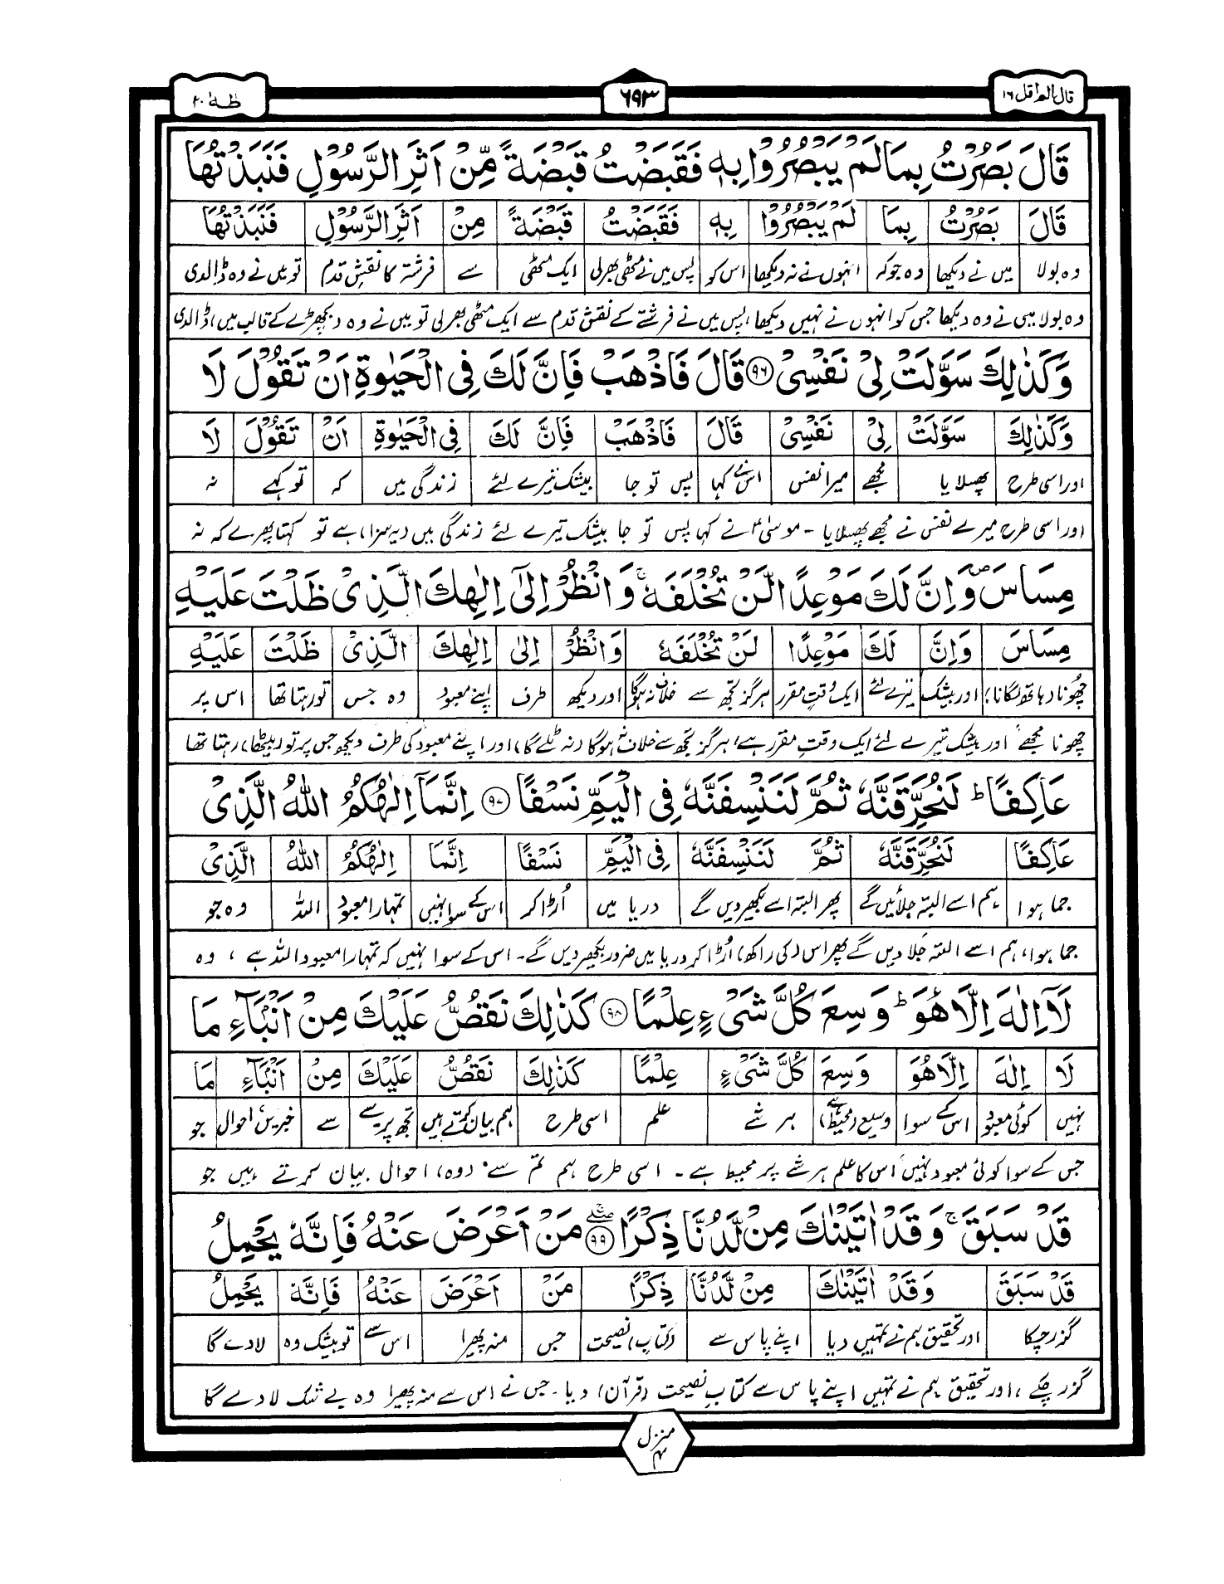 قال الم اقل ١٦
٦٩٣
طٰهٰ ٢٠
قَالَ بَصُرْتُ بِمَا لَمْ يَبْصُرُوْا بِهٖ فَقَبَضْتُ قَبْضَةً مِّنْ اَثَرِ الرَّسُوْلِ فَنَبَذْتُهَا
قَالَ بَصُرْتُ بِمَا لَمْ يَبْصُرُوْا بِهٖ فَقَبَضْتُ قَبْضَةً مِنْ اَثَرِ الرَّسُوْلِ فَنَبَذْتُهَا
وہ بولا میں نے دیکھا وہ جو کہ انہوں نے نہ دیکھا اس کو پس میں نے مٹھی بھر لی ایک مٹھی سے فرشتہ کا نقشِ قدم تو میں نے وہ ڈالدی
وہ بولا میں نے وہ دیکھا جس کو انہوں نے نہیں دیکھا، پس میں نے فرشتے کے نقشِ قدم سے ایک مٹھی بھر لی تو میں نے وہ (بچھڑے کے قالب میں) ڈالدی
وَكَذٰلِكَ سَوَّلَتْ لِىْ نَفْسِىْ ۹۶ قَالَ فَاذْهَبْ فَاِنَّ لَكَ فِى الْحَيٰوةِ اَنْ تَقُوْلَ لَا
وَكَذٰلِكَ سَوَّلَتْ لِىْ نَفْسِىْ قَالَ فَاذْهَبْ فَاِنَّ لَكَ فِى الْحَيٰوةِ اَنْ تَقُوْلَ لَا
اور اسی طرح پھسلایا مجھے میرا نفس اس نے کہا پس تو جا بیشک تیرے لئے زندگی میں کہ تو کہے نہ
اور اسی طرح میرے نفس نے مجھے پھسلایا - موسیٰؑ نے کہا پس تو جا بیشک تیرے لئے زندگی میں (یہ سزا) ہے تو کہتا پھرے کہ نہ
مِسَاسَ ۪ وَاِنَّ لَكَ مَوْعِدًا لَّنْ تُخْلَفَهٗ ۚ وَانْظُرْ اِلٰٓى اِلٰهِكَ الَّذِىْ ظَلْتَ عَلَيْهِ
مِسَاسَ وَاِنَّ لَكَ مَوْعِدًا لَنْ تُخْلَفَهٗ وَانْظُرْ اِلٰى اِلٰهِكَ الَّذِىْ ظَلْتَ عَلَيْهِ
چھونا (ہاتھ لگانا) اور بیشک تیرے لئے ایک وقتِ مقرر ہرگز تجھ سے خلاف نہ ہوگا اور دیکھ طرف اپنے معبود وہ جس تو رہتا تھا اس پر
چھونا مجھے اور بیشک تیرے لئے ایک وقتِ مقرر ہے، ہرگز تجھ سے خلاف نہ ہوگا (نہ ٹلے گا) اور اپنے معبود کی طرف دیکھ جس پر تو (بیٹھا) رہتا تھا
عَاكِفًا ؕ لَنُحَرِّقَنَّهٗ ثُمَّ لَنَنْسِفَنَّهٗ فِى الْيَمِّ نَسْفًا ۹۷ اِنَّمَآ اِلٰهُكُمُ اللّٰهُ الَّذِىْ
عَاكِفًا لَنُحَرِّقَنَّهٗ ثُمَّ لَنَنْسِفَنَّهٗ فِى الْيَمِّ نَسْفًا اِنَّمَا اِلٰهُكُمُ اللّٰهُ الَّذِىْ
جما ہوا ہم اسے البتہ جلائیں گے پھر البتہ اسے بکھیر دیں گے دریا میں اُڑا کر اس کے سوا نہیں تمہارا معبود اللہ وہ جو
جما ہوا، ہم اسے البتہ جلا دیں گے پھر اس (کی راکھ) اُڑا کر دریا میں ضرور بکھیر دیں گے۔ اس کے سوا نہیں کہ تمہارا معبود اللہ ہے ، وہ
لَآ اِلٰهَ اِلَّا هُوَ ؕ وَسِعَ كُلَّ شَىْءٍ عِلْمًا ۹۸ كَذٰلِكَ نَقُصُّ عَلَيْكَ مِنْ اَنْۢبَآءِ مَا
لَا اِلٰهَ اِلَّا هُوَ وَسِعَ كُلَّ شَىْءٍ عِلْمًا كَذٰلِكَ نَقُصُّ عَلَيْكَ مِنْ اَنْۢبَآءِ مَا
نہیں کوئی معبود اس کے سوا وسیع (محیط) ہے ہر شے علم اسی طرح ہم بیان کرتے ہیں تجھ پر سے سے خبریں، احوال جو
جس کے سوا کوئی معبود نہیں اس کا علم ہر شے پر محیط ہے ۔ اسی طرح ہم تم سے (وہ) احوال بیان کرتے ہیں جو
قَدْ سَبَقَ ۚ وَقَدْ اٰتَيْنٰكَ مِنْ لَّدُنَّا ذِكْرًا ۹۹ مَنْ اَعْرَضَ عَنْهُ فَاِنَّهٗ يَحْمِلُ
قَدْ سَبَقَ وَقَدْ اٰتَيْنٰكَ مِنْ لَّدُنَّا ذِكْرًا مَنْ اَعْرَضَ عَنْهُ فَاِنَّهٗ يَحْمِلُ
گزر چکا اور تحقیق ہم نے تمہیں دیا اپنے پاس سے (کتابِ) نصیحت جس منہ پھیرا اس سے تو بیشک وہ لادے گا
گزر چکے ، اور تحقیق ہم نے تمہیں اپنے پاس سے کتابِ نصیحت (قرآن) دیا۔ جس نے اس سے منہ پھیرا وہ بے شک لادے گا
منزل ۴